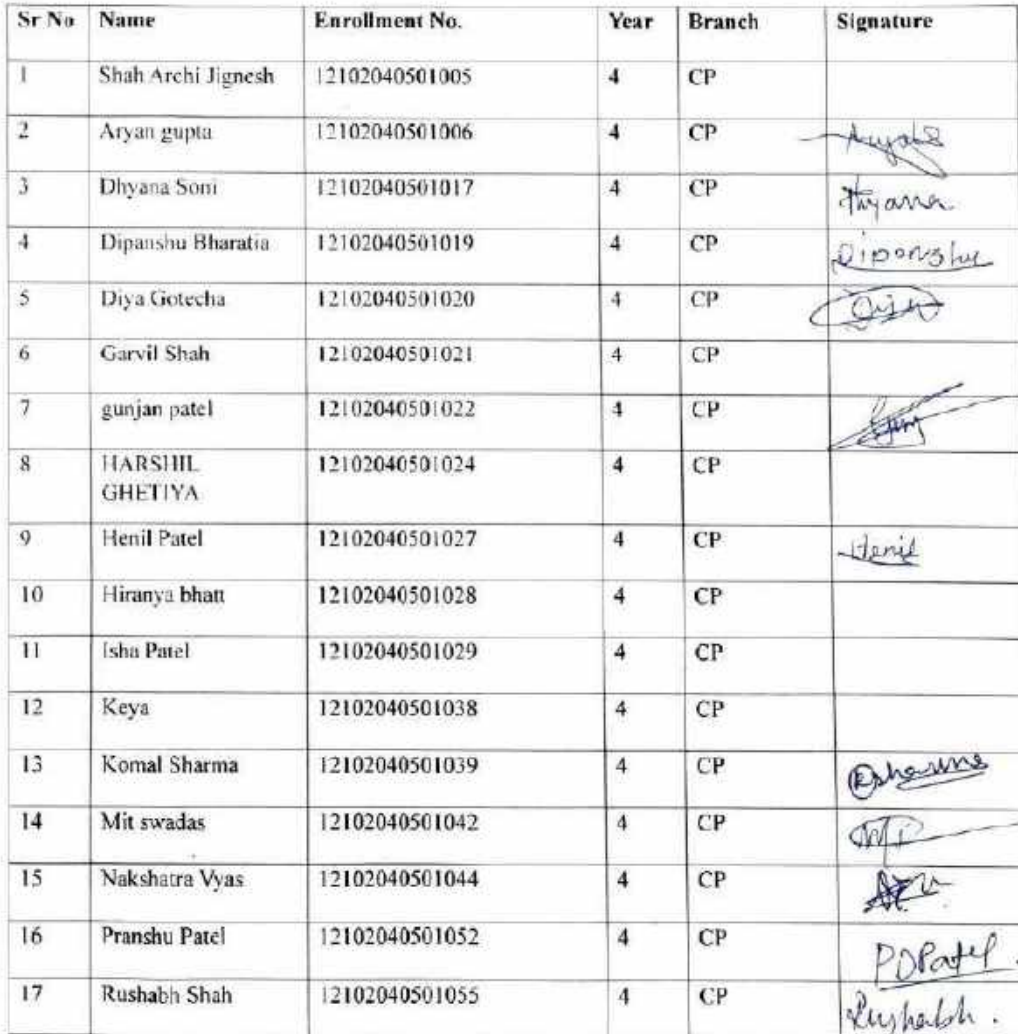 Sr No Name Enrollment No. Year Branch Signature
1 Shah Archi Jignesh 12102040501005 4 CP
2 Aryan gupta 12102040501006 4 CP
3 Dhyana Soni 12102040501017 4 CP Dhyana
4 Dipanshu Bharatia 12102040501019 4 CP Dipanshu
5 Diya Gotecha 12102040501020 4 CP
6 Garvil Shah 12102040501021 4 CP
7 gunjan patel 12102040501022 4 CP
8 HARSHIL 12102040501024 4 CP
GHETIYA
9 Henil Patel 12102040501027 4 CP Henil
10 Hiranya bhatt 12102040501028 4 CP
11 Isha Patel 12102040501029 4 CP
12 Keya 12102040501038 4 CP
13 Komal Sharma 12102040501039 4 CP Ksharma
14 Mit swadas 12102040501042 4 CP
15 Nakshatra Vyas 12102040501044 4 CP
16 Pranshu Patel 12102040501052 4 CP PDPatel.
17 Rushabh Shah 12102040501055 4 CP Rushabh.